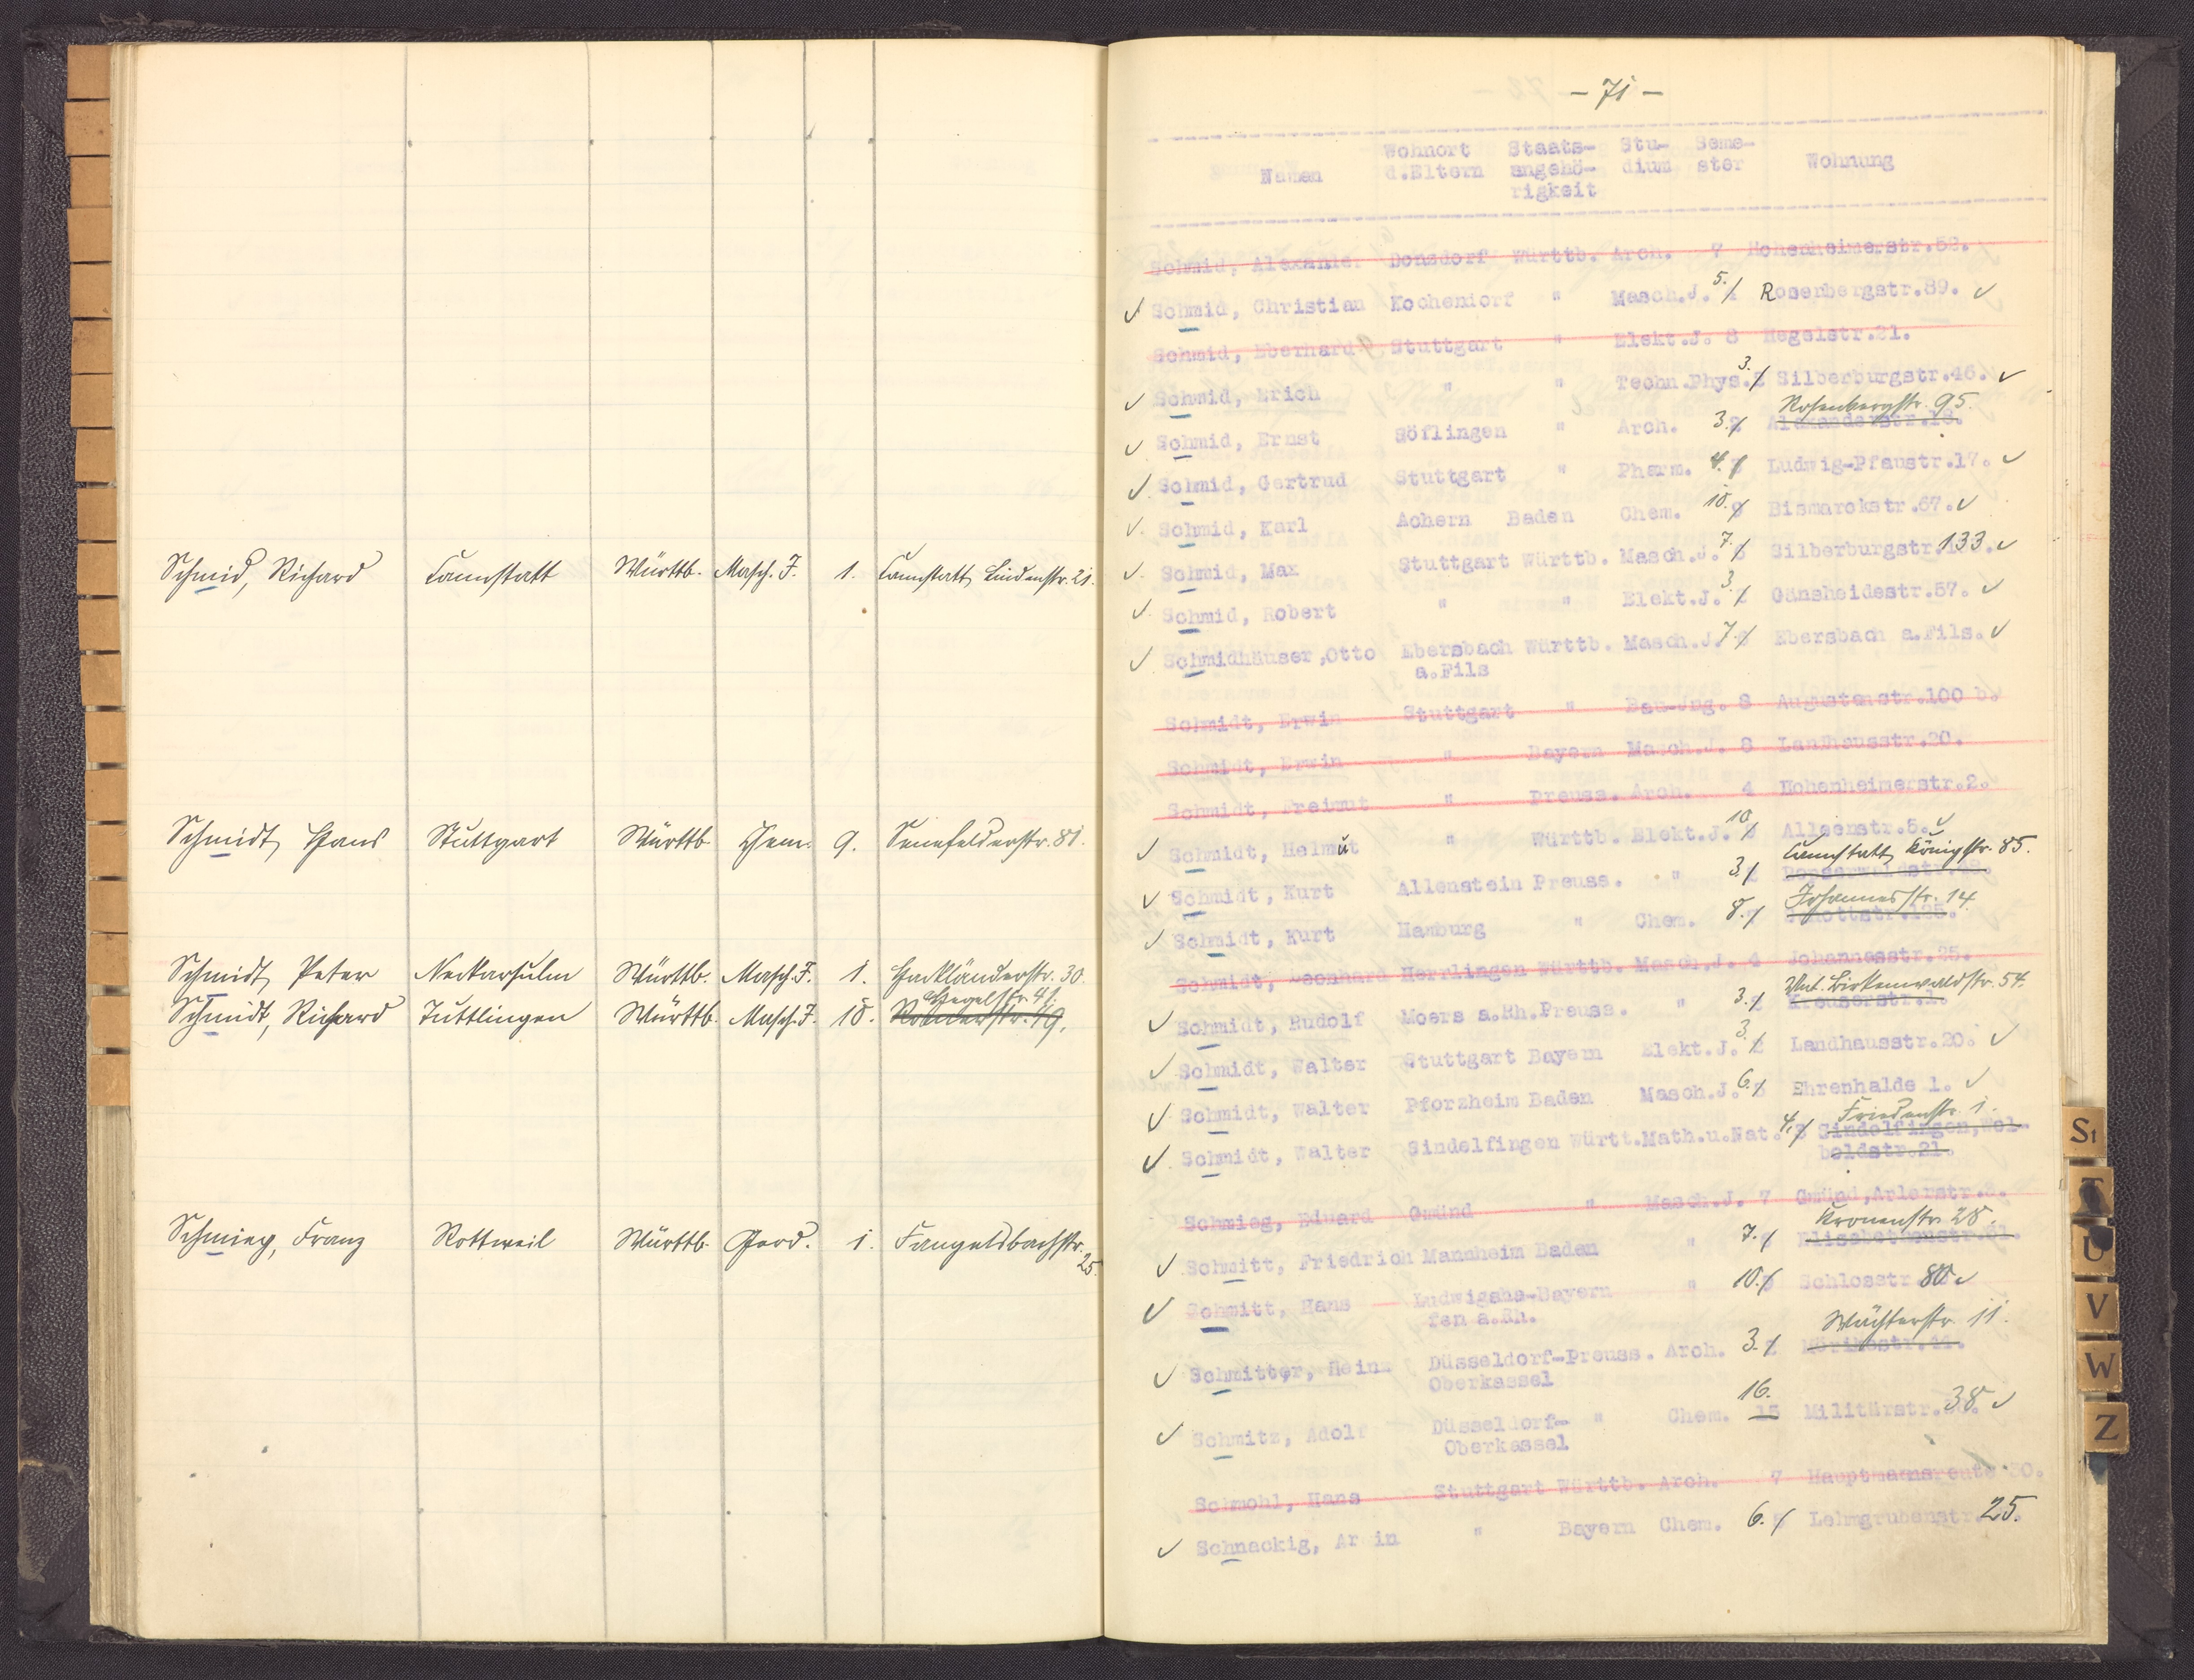 Schmid, Richard Cannstatt Württb. Masch. J. 1. Cannstatt, Lindenstr. 21.
Schmidt, Hans Stuttgart Württb. Chem. 9. Senefelderstr. 81.
Schmidt, Peter Neckarsulm Württb. Masch. J. 1. Hackländerstr. 30.
Hegelstr. 41.
Schmidt, Richard Tuttlingen Württb. Masch. J. 10.
Schmieg, Franz Rottweil Württb. Geod. 1. Fangelsbachstr.
25.
- 71 -
Wohnort Staats- Stu- Seme-
Namen d.Eltern angehö- dium ster Wohnung
rigkeit
Schmid, Alexander Donzdorf Württb. Arch. 7 Hohenheimerstr.52.
Schmid, Christian Kochendorf " Masch.J. 5. Rosenbergstr.89.
Schmid, Eberhard Stuttgart " Elekt.J. 8 Hegelstr.21.
Schmid, Erich " " Techn.Phys. 3. 2 Silberburgstr.46.
Rosenbergstr. 95.
Schmid, Ernst Söflingen " Arch. 3. 2 Alexanderstr.18.
Schmid, Gertrud Stuttgart " Pharm. 4. Ludwig-Pfaustr.17.
Schmid, Karl Achern Baden Chem. 10. 9 Bismarckstr.67.
Schmid, Max Stuttgart Württb. Masch.J. 7. Silberburgstr.133.
Schmid, Robert " " Elekt.J. 3. 2 Gänsheidestr.57.
Schmidhäuser,Otto Ebersbach Württb. Masch.J. 7. Ebersbach a.Fils.
a.Fils
Schmidt, Erwin Stuttgart " Bau-Jng. 8 Augustenstr.100 b.
Schmidt, Erwin " Bayern Masch.J. 8 Landhausstr.20.
Schmidt, Freimut " Preuss. Arch. 4 Hohenheimerstr.2.
Schmidt, Helmut " Württb. Elekt.J. 10. Alleenstr.5.
Cannstatt, Königstr. 85.
Schmidt, Kurt Allenstein Preuss. " 3.
Johannesstr. 14.
Schmidt, Kurt Hamburg " Chem. 8.
Schmidt, Leonhard Herrlingen Württb. Masch.J. 4 Johannesstr.25.
Unt. Birkenwaldstr. 54.
Schmidt, Rudolf Moers a.Rh.Preuss. " 3. 2 Kreuserstr.
Schmidt, Walter Stuttgart Bayern Elekt.J. 3. 2 Landhausstr.20.
Schmidt, Walter Pforzheim Baden Masch.J. 6. Ehrenhalde 1.
Friedenstr. 1.
Schmidt, Walter Sindelfingen Württ.Math.u.Nat. 4. 3 Sindelfingen,
boldstr.21.
Schmieg, Eduard Gmünd " Masch.J. 7 Gmünd,Arlerstr.
Kronenstr. 28.
Schmitt, Friedrich Mannheim Baden " 7. Elisabethenstr.
Schmitt, Hans Ludwigsha-Bayern " 10. Schlosstr. 80
fen a.Rh.
Wächterstr. 11.
Schmitter, Heinz Düsseldorf-Preuss. Arch. 3. Mörikestr.
Oberkassel
Schmitz, Adolf Düsseldorf- " Chem. 16. 15 Militärstr. 38
Oberkassel
Schmohl, Hans Stuttgart Württb. Arch. 7 Hauptmannsreute 30.
Schnackig, Armin " Bayern Chem. 6. Lehmgrubenstr. 25.
St
T
U
V
W
Z